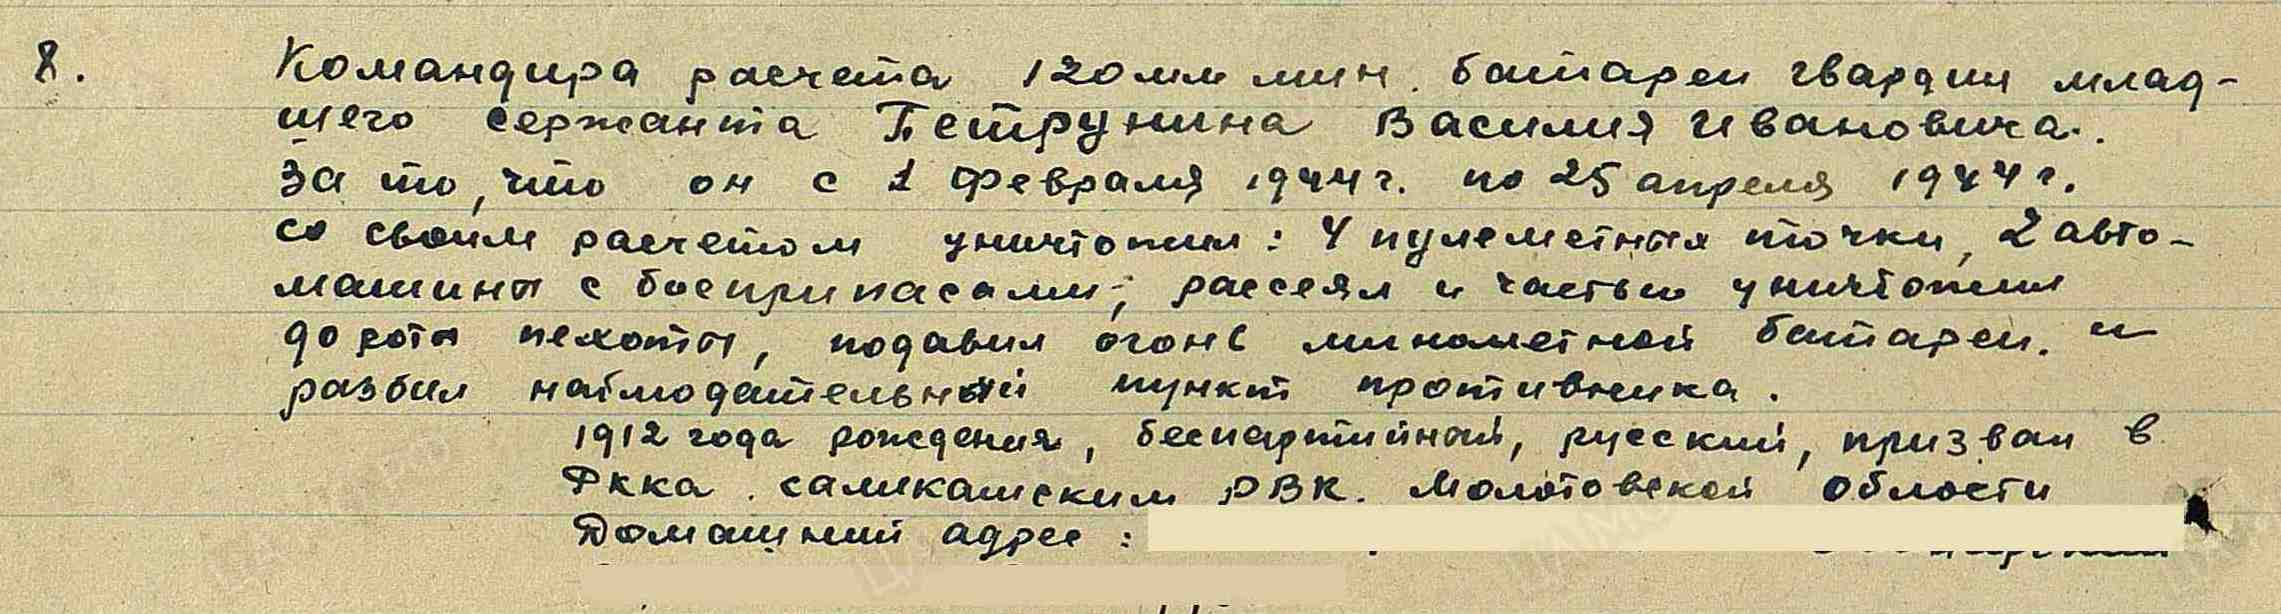 8. Командира расчета 120 мм мин. батареи гвардии млад-
шего сержанта Петрунина Василия Ивановича.
За то, что он с 1 февраля 1944 г. по 25 апреля 1944 г.
со своим расчетом уничтожил: 4 пулеметныя точки, 2 авто-
машины с боеприпасами, рассеял и частью уничтожил
до роты пехоты, подавил огонь минометной батареи. и
разбил наблюдательный пункт противника.
1912 года рождения, беспартийный, русский, призван в
РККА. саликамским РВК. Молотовской области
Домашний адрес: